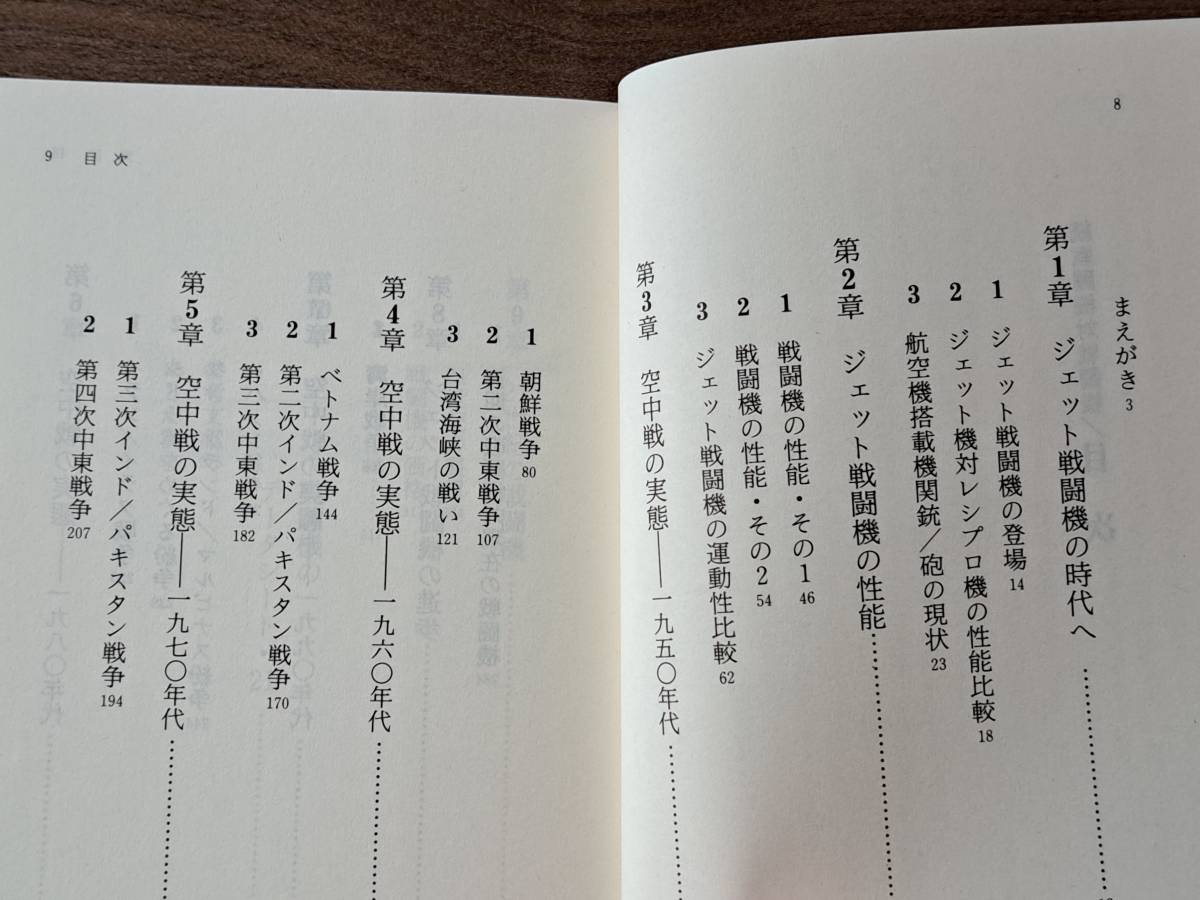 8
まえがき 3
第1章 ジェット戦闘機の時代へ……………
1 ジェット戦闘機の登場 14
2 ジェット機対レシプロ機の性能比較 18
3 航空機搭載機関銃／砲の現状 23
第2章 ジェット戦闘機の性能……………
1 戦闘機の性能・その1 46
2 戦闘機の性能・その2 54
3 ジェット戦闘機の運動性比較 62
第3章 空中戦の実態――一九五〇年代……………
9 目次
1 朝鮮戦争 80
2 第二次中東戦争 107
3 台湾海峡の戦い 121
第4章 空中戦の実態――一九六〇年代……………
1 ベトナム戦争 144
2 第二次インド／パキスタン戦争 170
3 第三次中東戦争 182
第5章 空中戦の実態――一九七〇年代……………
1 第三次インド／パキスタン戦争 194
2 第四次中東戦争 207